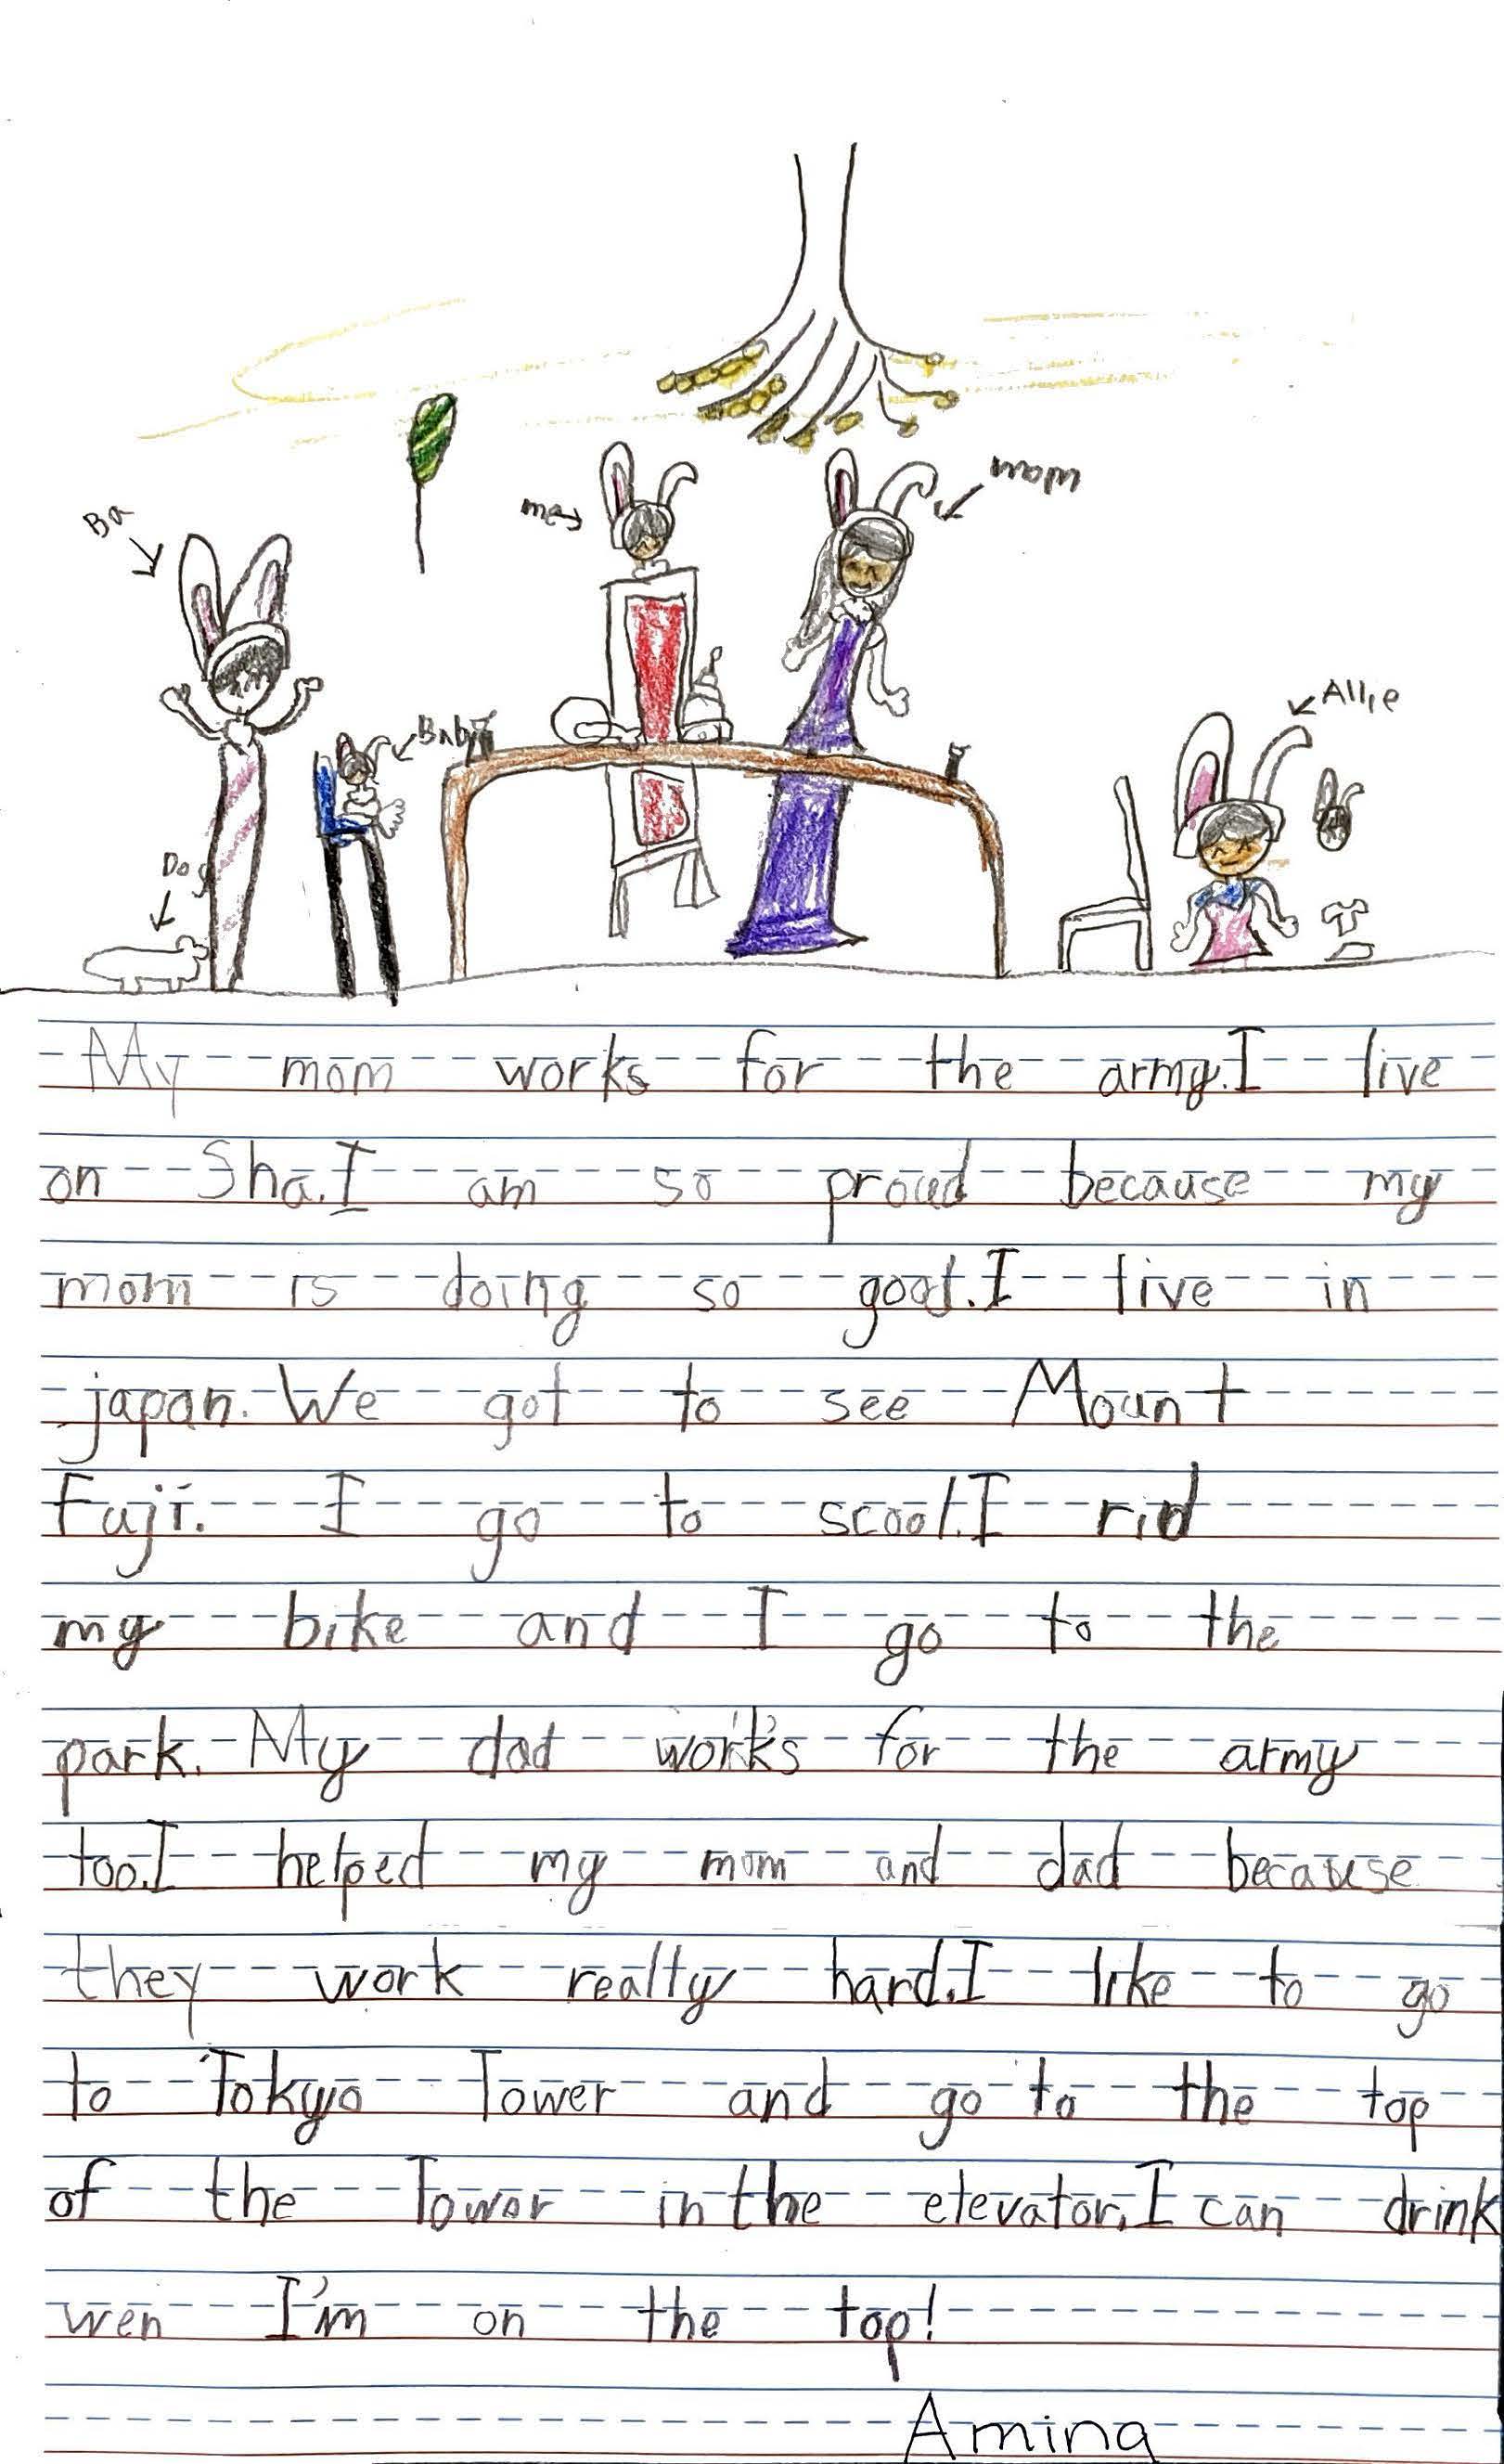 Ba
me
Mom
Baby
Allie
Dog
My mom works for the army.I live
on Sha.I am so proud because my
mom is doing so good.I live in
japan. We got to see Mount
Fuji. I go to scool.I rid
my bike and I go to the
park. My dad works for the army
too.I helped my mom and dad because
they work really hard.I like to go
to Tokyo Tower and go to the top
of the Tower in the elevator.I can drink
wen I'm on the top!
Amina